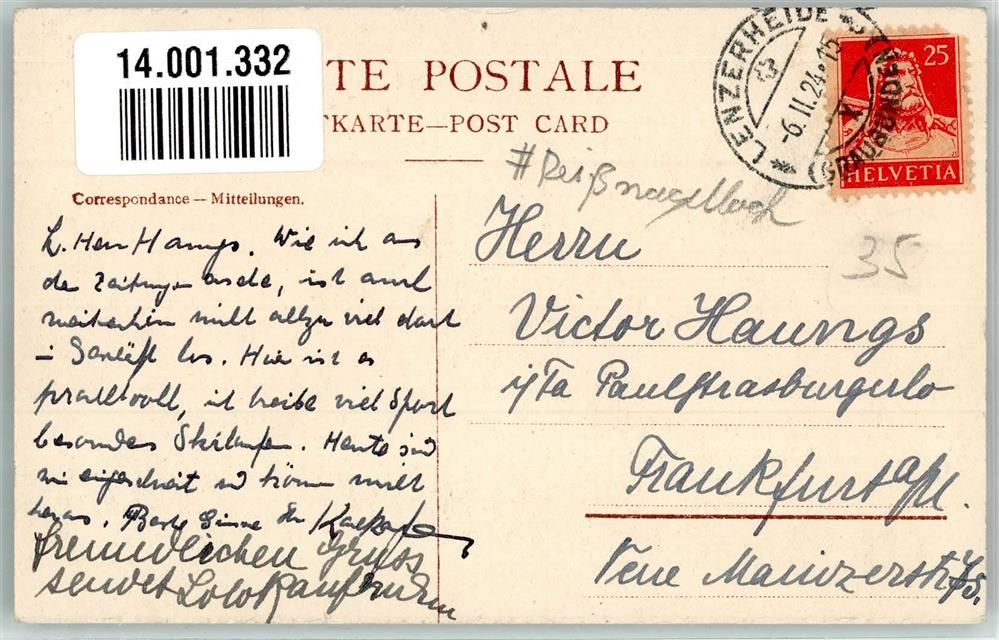 14.001.332
TE POSTALE
TKARTE—POST CARD
LENZERHEIDE
(GRAUBÜNDEN)
-6.II.24.15
25
HELVETIA
#Reißnagelloch
35
Correspondance — Mitteilungen.
L. Herr Haungs. Wie ich aus
den Zeitungen ersehe, ist auch
weiterhin nicht allzu viel dort
im Geschäft los. Hier ist es
prachtvoll, ich treibe viel Sport
besonders Skilaufen. Heute sind
wir eingeschneit und können nicht
heraus. Beste Grüsse Ihr
freundlichen Gruss
sendet
Herrn
Victor Haungs
i/Fa Paul Strasburger & Co
Frankfurt a/M.
Neue Mainzerstr.